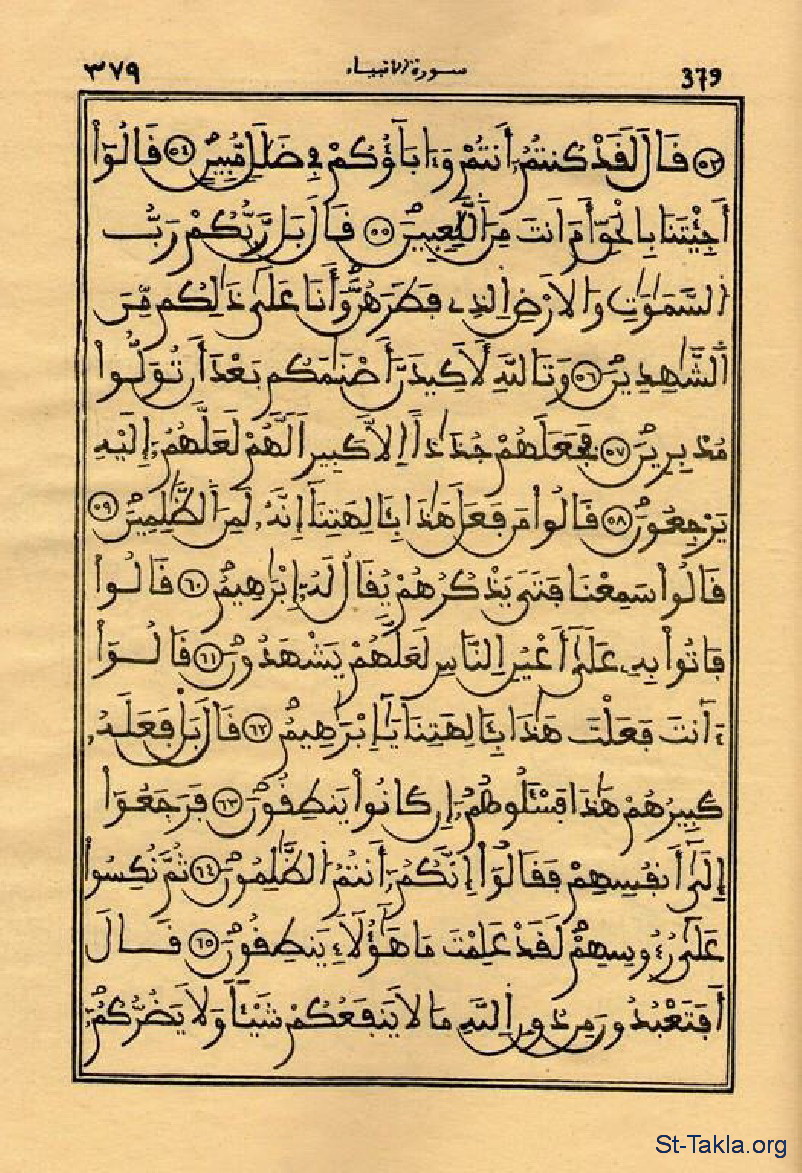 ٣٧٩ سورة الانبياء 379
٥٣ فَالَ لَفَدْ كُنتُمُۥٓ أَنتُمْ وَءَابَآؤُكُمْ فِے ضَلَٰلٖ مُّبِينٖۖ ٥٤ فَالُوٓاْ
أَجِيْتَنَا بِالْحَقِّ أَمَ اَنتَ مِنَ اَللَّٰعِبِينَۖ ٥٥ فَالَ بَل رَّبُّكُمْ رَبُّ
اُلسَّمَٰوَٰتِ وَالَارْضِ اِلذِے فَطَرَهُنَّ وَأَنَا عَلَىٰ ذَٰلِكُم مِّنَ
اَلشَّٰهِدِينَۖ ٥٦ وَتَاللَّهِ لَأَكِيدَنَّ أَصْنَٰمَكُم بَعْدَ أَن تُوَلُّواْ
مُدْبِرِينَۖ ٥٧ فَجَعَلَهُمْ جُذَٰذاً اِلاَّ كَبِيراٗ لَّهُمْ لَعَلَّهُمُۥٓ إِلَيْهِ
يَرْجِعُونَۖ ٥٨ فَالُواْ مَن فَعَلَ هَٰذَا بِـَٔالِهَتِنَآ إِنَّهُۥ لَمِنَ اَلظَّٰلِمِينَۖ ٥٩
فَالُواْ سَمِعْنَا فَتىٗ يَذْكُرُهُمْ يُفَالُ لَهُۥٓ إِبْرَٰهِيمُۖ ٦٠ فَالُواْ
فَاتُواْ بِهِۦ عَلَىٰٓ أَعْيُنِ اِلنَّاسِ لَعَلَّهُمْ يَشْهَدُونَۖ ٦١ فَالُوٓاْ
ءَآنتَ فَعَلْتَ هَٰذَا بِـَٔالِهَتِنَا يَٰٓإِبْرَٰهِيمُۖ ٦٢ فَالَ بَلْ فَعَلَهُۥ
كَبِيرُهُمْ هَٰذَا فَسْـَٔلُوهُمُۥٓ إِن كَانُواْ يَنطِفُونَۖ ٦٣ فَرَجَعُوٓاْ
إِلَىٰٓ أَنفُسِهِمْ فَفَالُوٓاْ إِنَّكُمُۥٓ أَنتُمُ اُلظَّٰلِمُونَۖ ٦٤ ثُمَّ نُكِسُواْ
عَلَىٰ رُءُوسِهِمْ لَفَدْ عَلِمْتَ مَا هَٰٓؤُلَآءِ يَنطِفُونَۖ ٦٥ فَالَ
أَفَتَعْبُدُونَ مِن دُونِ اِللَّهِ مَا لاَ يَنفَعُكُمْ شَيْـٔاٗ وَلاَ يَضُرُّكُمُۥٓ
St-Takla.org